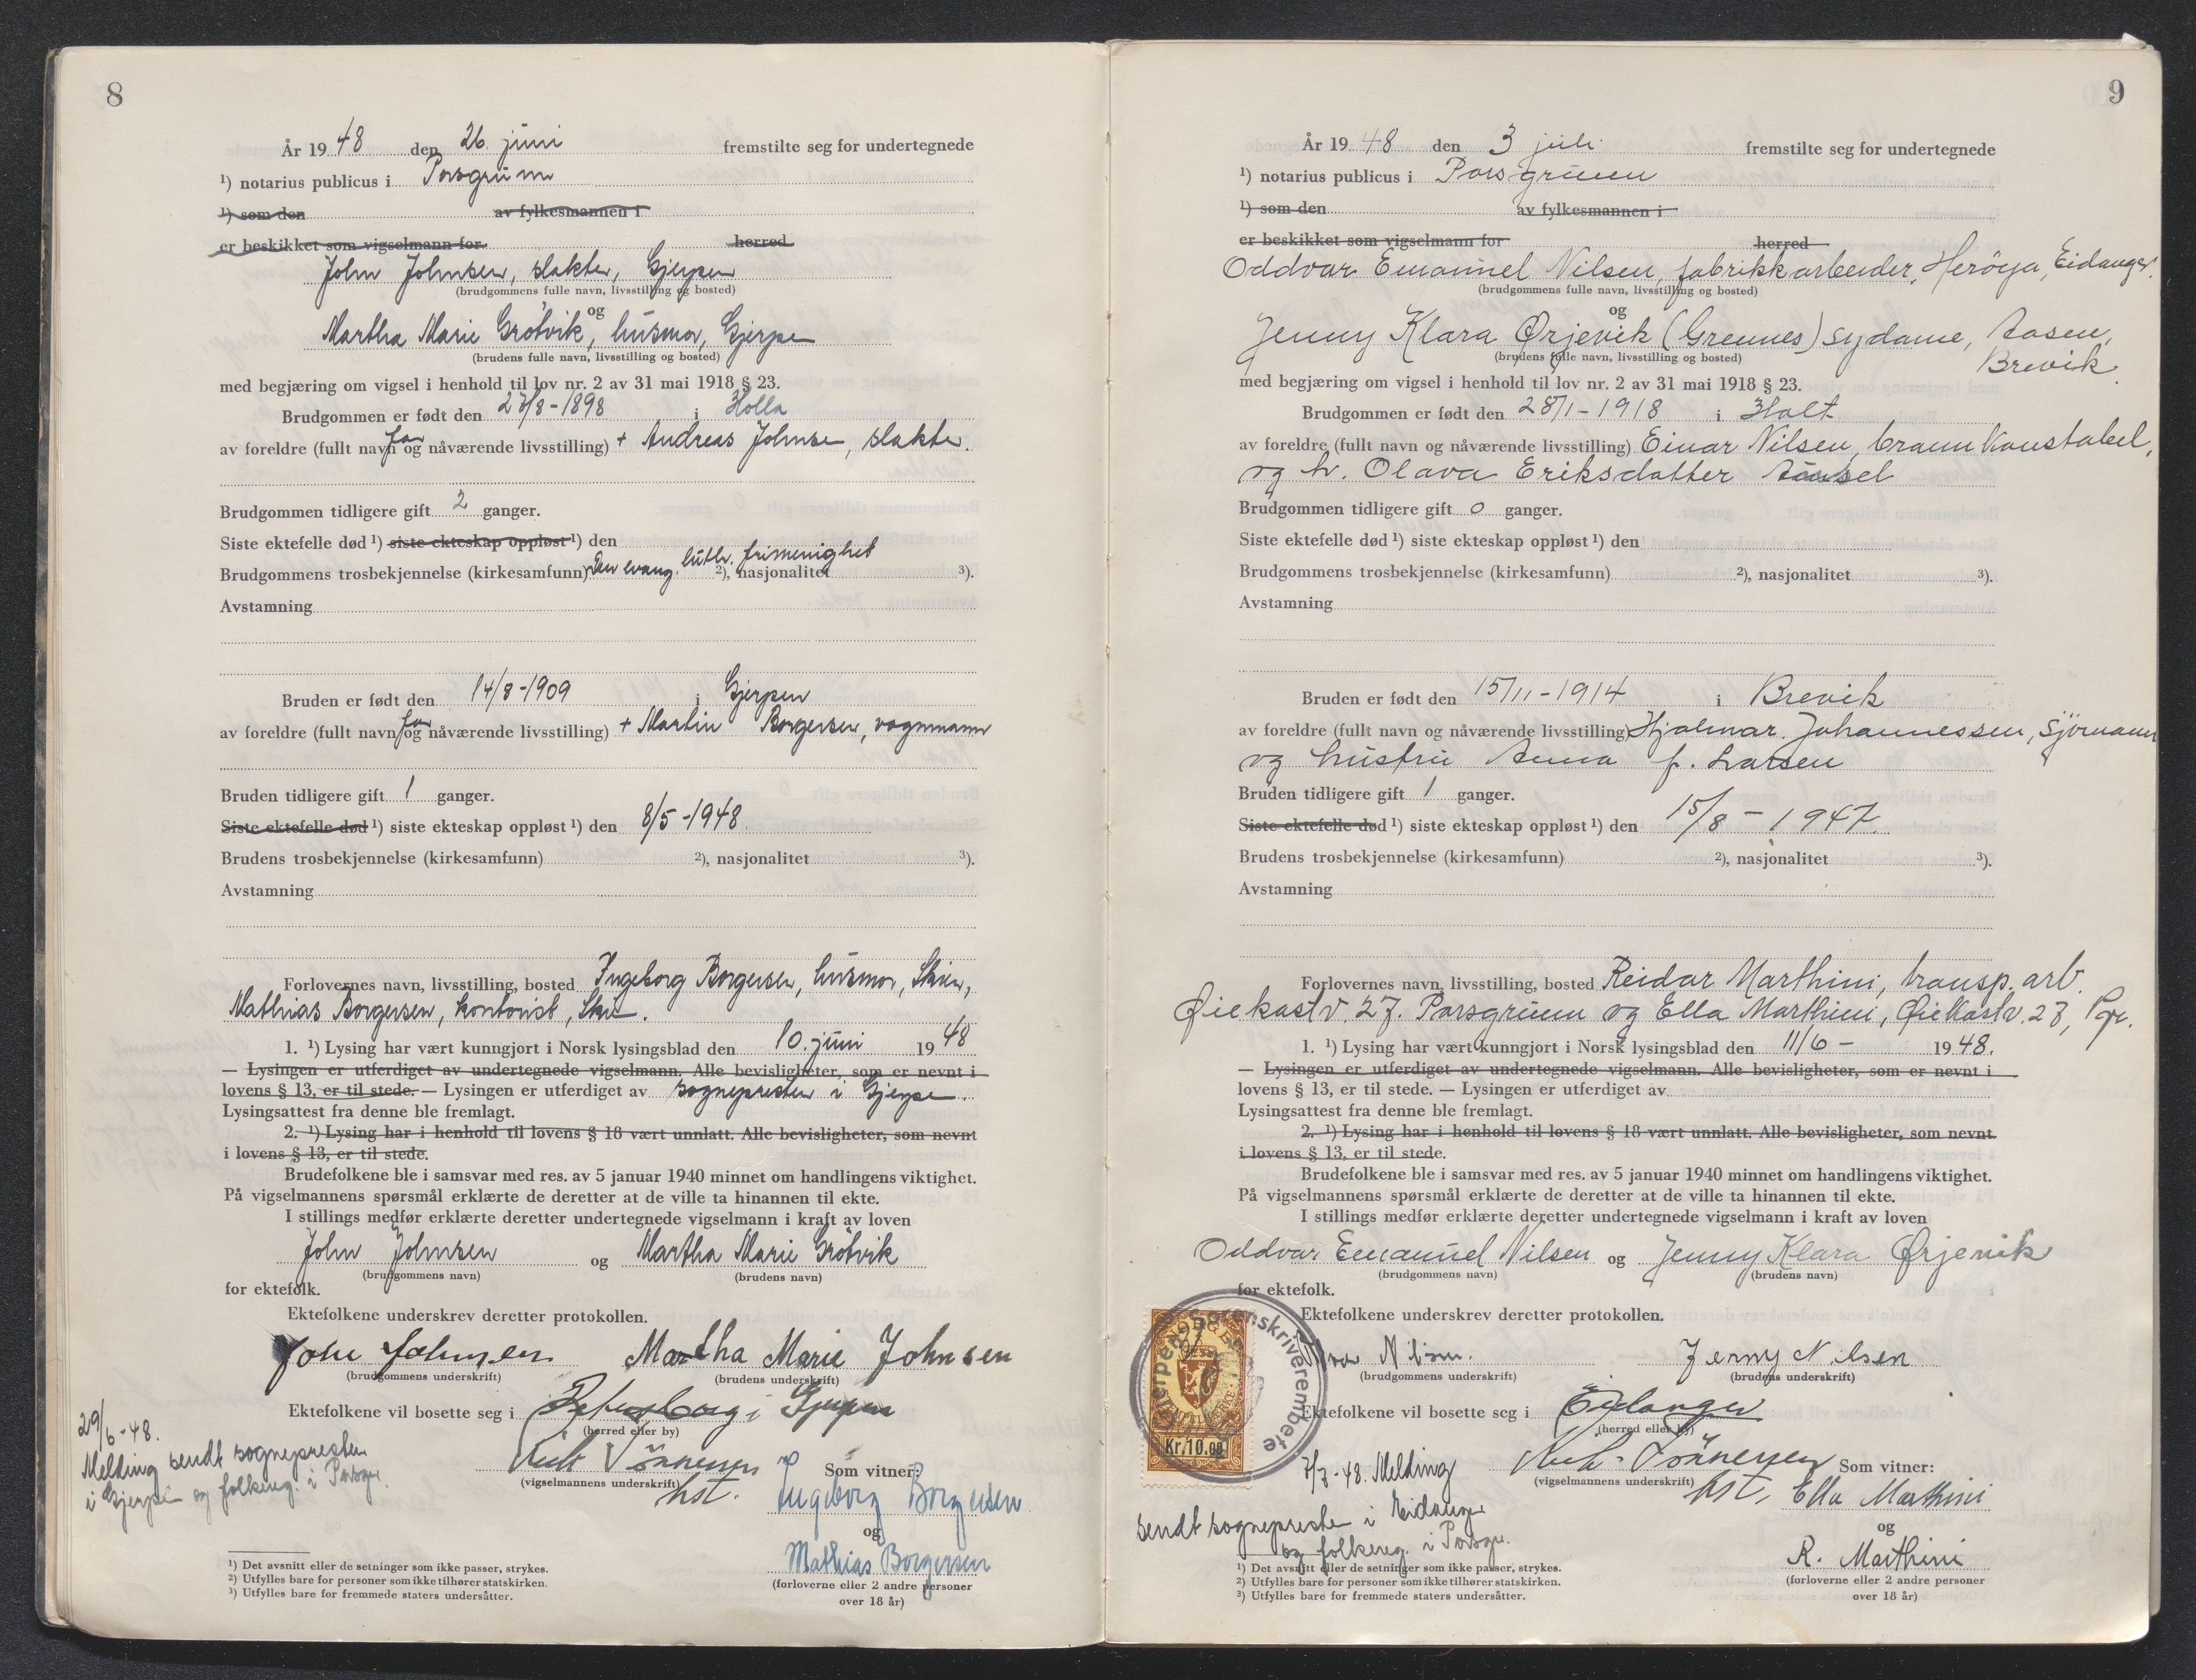 8
År 19 48 den 26. juni fremstilte seg for undertegnede
¹) notarius publicus i Porsgrunn
¹) som den av fylkesmannen i
er beskikket som vigselmann for herred
John Johnsen, slakter, Gjerpen
(brudgommens fulle navn, livsstilling og bosted)
og
Martha Marie Grötvik, husmor, Gjerpen
(brudens fulle navn, livsstilling og bosted)
med begjæring om vigsel i henhold til lov nr. 2 av 31 mai 1918 § 23.
Brudgommen er født den 27/8-1898 i Holla
far
av foreldre (fullt navn og nåværende livsstilling) + Andreas Johnsen, slakter.
Brudgommen tidligere gift 2 ganger.
Siste ektefelle død ¹) siste ekteskap oppløst ¹) den
Brudgommens trosbekjennelse (kirkesamfunn) Den evang. luth. frimenighet ²), nasjonalitet ³).
Avstamning
Bruden er født den 14/8-1909 i Gjerpen
far
av foreldre (fullt navn og nåværende livsstilling) + Martin Borgersen, vognmann
Bruden tidligere gift 1 ganger.
Siste ektefelle død ¹) siste ekteskap oppløst ¹) den 8/5-1948.
Brudens trosbekjennelse (kirkesamfunn) ²), nasjonalitet ³).
Avstamning
Forlovernes navn, livsstilling, bosted Ingeborg Borgersen, husmor, Skien,
Mathias Borgersen, kontorist, Skien.
1. ¹) Lysing har vært kunngjort i Norsk lysingsblad den 10. juni 19 48
— Lysingen er utferdiget av undertegnede vigselmann. Alle bevisligheter, som er nevnt i
lovens § 13, er til stede. — Lysingen er utferdiget av sognepresten i Gjerpen.
Lysingsattest fra denne ble fremlagt.
2. ¹) Lysing har i henhold til lovens § 18 vært unnlatt. Alle bevisligheter, som nevnt
i lovens § 13, er til stede.
Brudefolkene ble i samsvar med res. av 5 januar 1940 minnet om handlingens viktighet.
På vigselmannens spørsmål erklærte de deretter at de ville ta hinannen til ekte.
I stillings medfør erklærte deretter undertegnede vigselmann i kraft av loven
John Johnsen og Martha Marie Grötvik
(brudgommens navn) (brudens navn)
for ektefolk.
Ektefolkene underskrev deretter protokollen.
John Johnsen Martha Marie Johnsen
(brudgommens underskrift) (brudens underskrift)
Ektefolkene vil bosette seg i i Gjerpen
(herred eller by)
29/6-48.
Melding sendt sognepresten
i Gjerpen og folkereg. i Porsgr.
(vigselmannens underskrift) Som vitner:
hst.
Ingeborg Borgersen
og
Mathias Borgersen
(forloverne eller 2 andre personer
over 18 år)
¹) Det avsnitt eller de setninger som ikke passer, strykes.
²) Utfylles bare for personer som ikke tilhører statskirken.
³) Utfylles bare for fremmede staters undersåtter.
9
År 19 48 den 3 juli fremstilte seg for undertegnede
¹) notarius publicus i Porsgrunn
¹) som den av fylkesmannen i
er beskikket som vigselmann for herred
Oddvar Emanuel Nilsen, fabrikkarbeider, Herøya, Eidanger.
(brudgommens fulle navn, livsstilling og bosted)
og
Jenny Klara Ørjevik (Grennes) sydame, Aasen,
Brevik
(brudens fulle navn, livsstilling og bosted)
med begjæring om vigsel i henhold til lov nr. 2 av 31 mai 1918 § 23.
Brudgommen er født den 28/1-1918 i Holt
av foreldre (fullt navn og nåværende livsstilling) Einar Nilsen, brannkonstabel,
og h. Olava Eriksdatter
Brudgommen tidligere gift 0 ganger.
Siste ektefelle død ¹) siste ekteskap oppløst ¹) den
Brudgommens trosbekjennelse (kirkesamfunn) ²), nasjonalitet ³).
Avstamning
Bruden er født den 15/11-1914 i Brevik
av foreldre (fullt navn og nåværende livsstilling) Hjalmar Johannessen, sjömann
og hustru Anna f. Larsen
Bruden tidligere gift 1 ganger.
Siste ektefelle død ¹) siste ekteskap oppløst ¹) den 15/8-1947.
Brudens trosbekjennelse (kirkesamfunn) ²), nasjonalitet ³).
Avstamning
Forlovernes navn, livsstilling, bosted Reidar Marthini, transp. arb.
Øiekastv. 27. Porsgrunn og Ella Marthini, Øiekastv. 27, Pgr.
1. ¹) Lysing har vært kunngjort i Norsk lysingsblad den 11/6- 19 48.
— Lysingen er utferdiget av undertegnede vigselmann. Alle bevisligheter, som er nevnt i
lovens § 13, er til stede. — Lysingen er utferdiget av
Lysingsattest fra denne ble fremlagt.
2. ¹) Lysing har i henhold til lovens § 18 vært unnlatt. Alle bevisligheter, som nevnt
i lovens § 13, er til stede.
Brudefolkene ble i samsvar med res. av 5 januar 1940 minnet om handlingens viktighet.
På vigselmannens spørsmål erklærte de deretter at de ville ta hinannen til ekte.
I stillings medfør erklærte deretter undertegnede vigselmann i kraft av loven
Oddvar Emanuel Nilsen og Jenny Klara Ørjevik
(brudgommens navn) (brudens navn)
for ektefolk.
Ektefolkene underskrev deretter protokollen.
Nilsen. Jenny Nilsen
(brudgommens underskrift) (brudens underskrift)
Ektefolkene vil bosette seg i Eidanger
(herred eller by)
Kr. 10.00
7/7-48. Melding
sendt sogneprest i Eidanger
og folkereg. i Porsgr.
(vigselmannens underskrift) Som vitner:
hst.
Ella Marthini
og
R. Marthini
(forloverne eller 2 andre personer
over 18 år)
¹) Det avsnitt eller de setninger som ikke passer, strykes.
²) Utfylles bare for personer som ikke tilhører statskirken.
³) Utfylles bare for fremmede staters undersåtter.